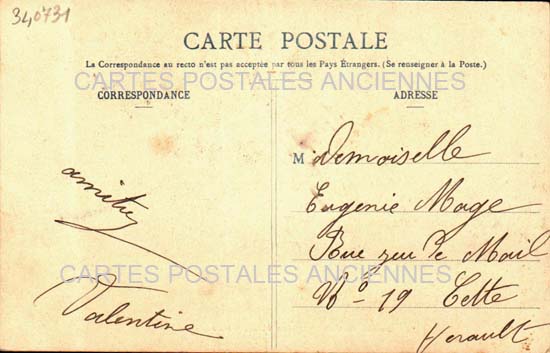 340731
CARTE POSTALE
La Correspondance au recto n'est pas acceptée par tous les Pays Étrangers. (Se renseigner à la Poste.)
CARTES POSTALES ANCIENNES
CORRESPONDANCE
ADRESSE
amitiés
Valentine
Mademoiselle
Eugenie Mage
Rue du Mail
No 19 Cette
Herault
CARTES POSTALES ANCIENNES